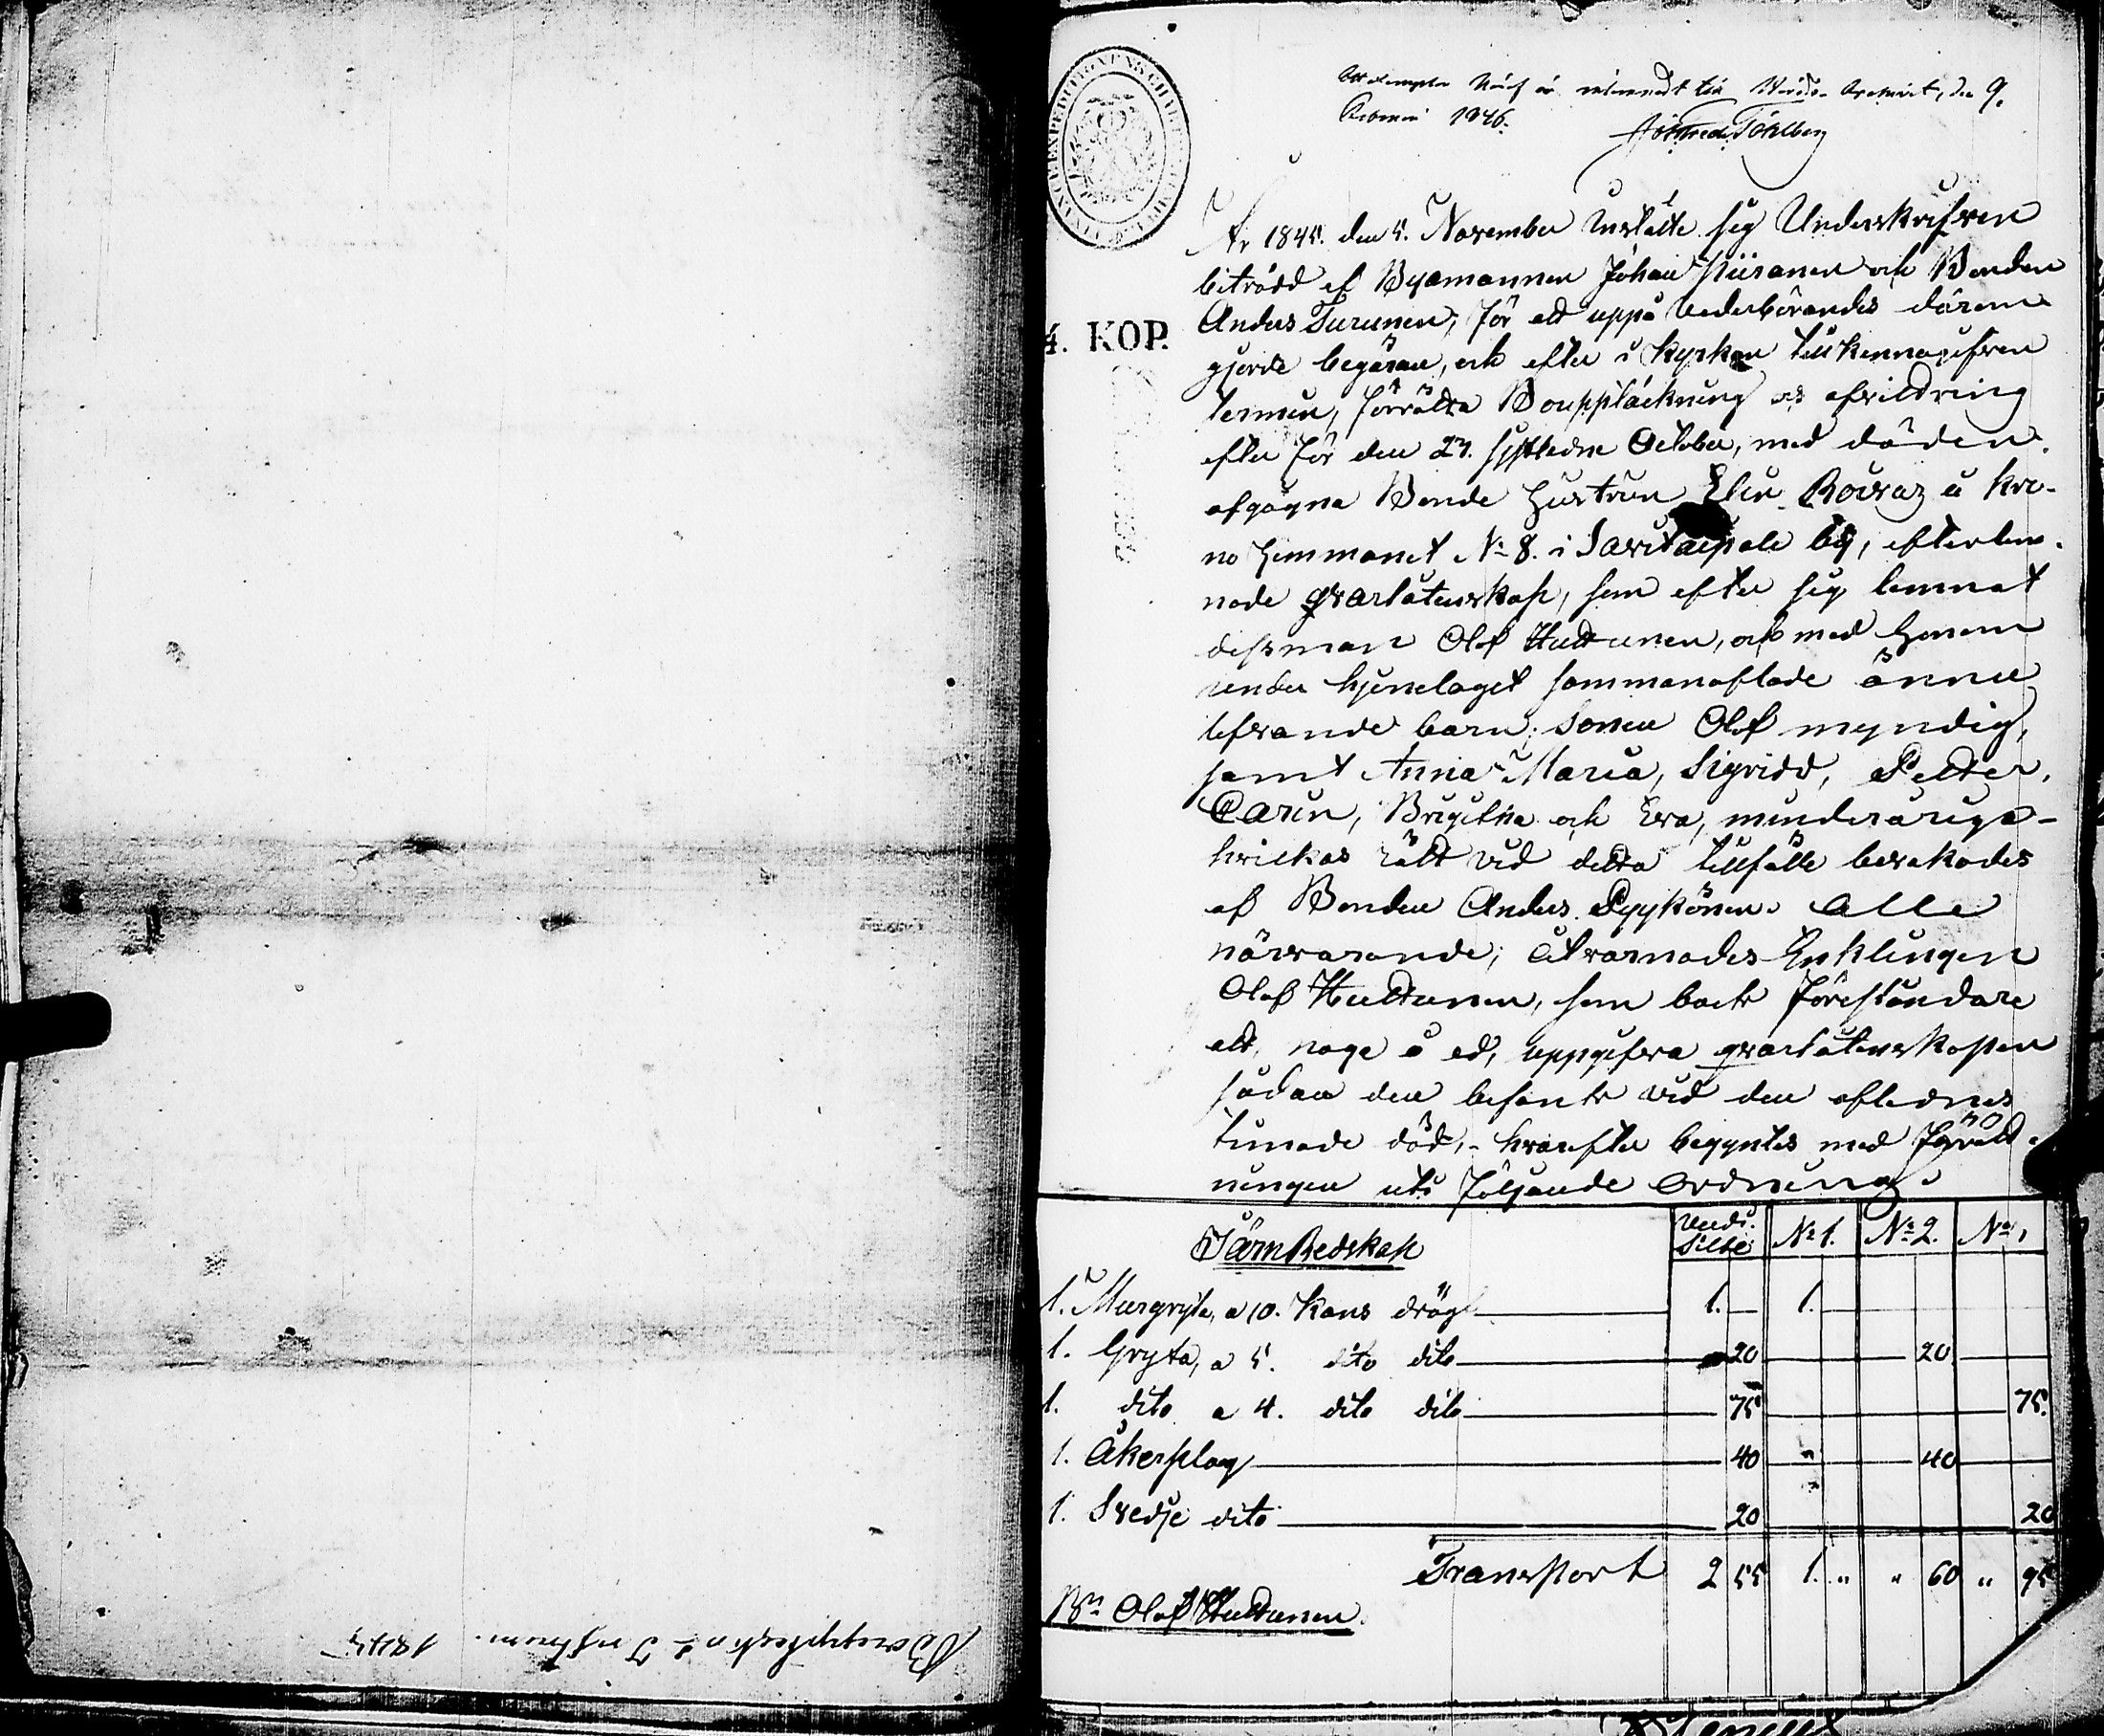 den 9.
1846.
År 1845. den 5. November instälte sig Underskrifven
biträdd af Byamannen Johan Piiranen och Bonden
Anders Turunen, för att uppå vederbörandes därom
gjorde begäran, och efter i Kyrkan tillkännagifven
termin, förrätta Bouppteckning och afvittring
efter för den 27. sistledne October, med döden
afgågna Bonde Hustrun Elin i Kro-
no Hemmanet No 8. i Savitaipale by, efterlem-
nade qvarlåtenskap, som efter sig lemnat
dess man Olof Huttunen, och med honom
under hjonelaget sammanaflade ännu
lefvande barn; Sonen Olof myndig,
samt Anna Maria, Sigridd, Petter,
Carin, Brigitha och Eva, minderåriga
hvilkas rätt vid detta tillfälle bevakades
af Bonden Anders Pyykönen. Alla
närvarande; åtvarnades Enklingen
Olof Huttunen, som boets föreståndare
att, noga å ed, uppgifva qvarlåtenskapen
sådan den befants vid den aflednes
timade död, - hvarefter begyntes med förrätt-
ningen uti följande Ordning.
4. KOP.
Järn Redskap Silfver No 1. No 2. No
1. Murgryta, a 10. Kans drög 1. 1.
1. Gryta, a 5. dito dito 20 20
1. dito a 4. dito dito 75 75.
1. Åkerplog 40 40
1. Svedje dito 20 20
Transport 2 55 1. " " 60 " 95
Bn Olof Huttunen.
1845.